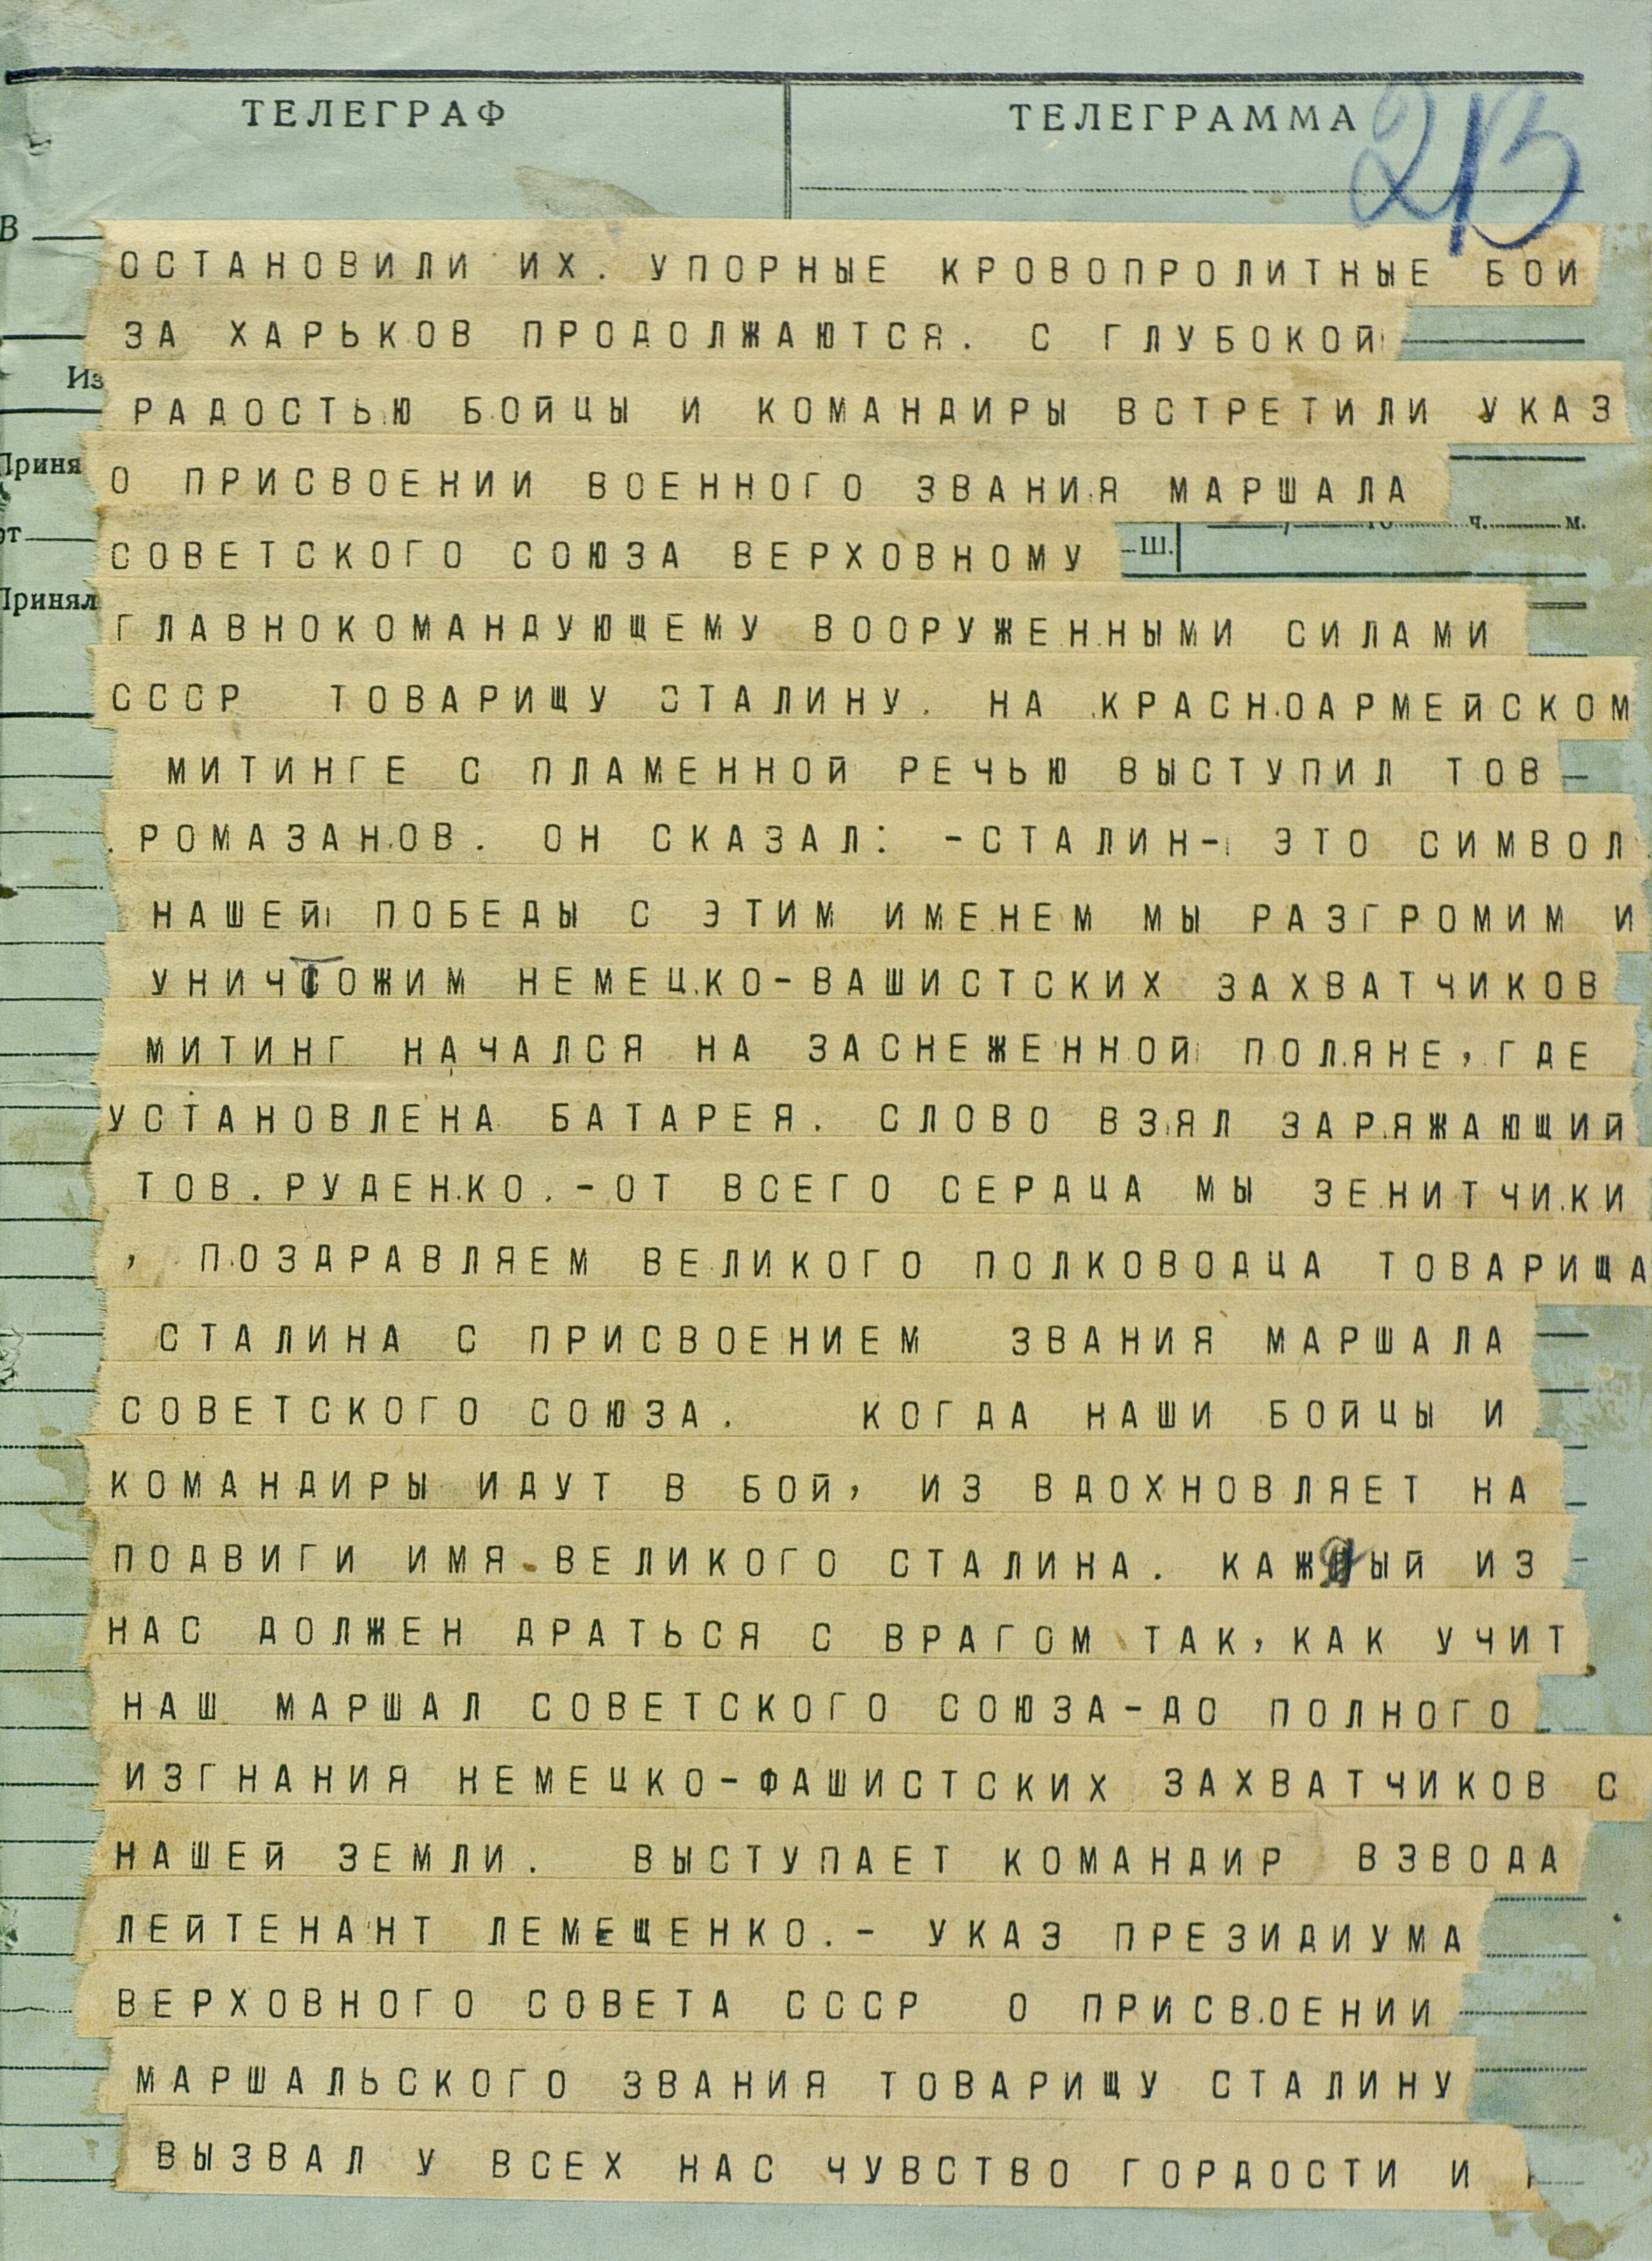 ТЕЛЕГРАФ
ТЕЛЕГРАММА
213
В
ОСТАНОВИЛИ ИХ. УПОРНЫЕ КРОВОПРОЛИТНЫЕ БОИ
ЗА ХАРЬКОВ ПРОДОЛЖАЮТСЯ. С ГЛУБОКОЙ
Из
РАДОСТЬЮ БОЙЦЫ И КОМАНДИРЫ ВСТРЕТИЛИ УКАЗ
О ПРИСВОЕНИИ ВОЕННОГО ЗВАНИЯ МАРШАЛА
ч. м.
СОВЕТСКОГО СОЮЗА ВЕРХОВНОМУ
Ш.
Принял
ГЛАВНОКОМАНДУЮЩЕМУ ВООРУЖЕННЫМИ СИЛАМИ
СССР ТОВАРИЩУ СТАЛИНУ. НА КРАСНОАРМЕЙСКОМ
МИТИНГЕ С ПЛАМЕННОЙ РЕЧЬЮ ВЫСТУПИЛ ТОВ
.РОМАЗАНОВ. ОН СКАЗАЛ: -СТАЛИН- ЭТО СИМВОЛ
НАШЕЙ ПОБЕДЫ С ЭТИМ ИМЕНЕМ МЫ РАЗГРОМИМ И
УНИЧТОЖИМ НЕМЕЦКО-ВАШИСТСКИХ ЗАХВАТЧИКОВ
МИТИНГ НАЧАЛСЯ НА ЗАСНЕЖЕННОЙ ПОЛЯНЕ, ГДЕ
УСТАНОВЛЕНА БАТАРЕЯ. СЛОВО ВЗЯЛ ЗАРЯЖАЮЩИЙ
ТОВ.РУДЕНКО.-ОТ ВСЕГО СЕРДЦА МЫ ЗЕНИТЧИКИ
, ПОЗДРАВЛЯЕМ ВЕЛИКОГО ПОЛКОВОДЦА ТОВАРИЩА
СТАЛИНА С ПРИСВОЕНИЕМ ЗВАНИЯ МАРШАЛА
СОВЕТСКОГО СОЮЗА. КОГДА НАШИ БОЙЦЫ И
КОМАНДИРЫ ИДУТ В БОЙ, ИЗ ВДОХНОВЛЯЕТ НА
ПОДВИГИ ИМЯ ВЕЛИКОГО СТАЛИНА. КАЖДЫЙ ИЗ
НАС ДОЛЖЕН ДРАТЬСЯ С ВРАГОМ ТАК, КАК УЧИТ
НАШ МАРШАЛ СОВЕТСКОГО СОЮЗА-ДО ПОЛНОГО
ИЗГНАНИЯ НЕМЕЦКО-ФАШИСТСКИХ ЗАХВАТЧИКОВ С
НАШЕЙ ЗЕМЛИ. ВЫСТУПАЕТ КОМАНДИР ВЗВОДА
ЛЕЙТЕНАНТ ЛЕМЕЩЕНКО.- УКАЗ ПРЕЗИДИУМА
ВЕРХОВНОГО СОВЕТА СССР О ПРИСВОЕНИИ
МАРШАЛЬСКОГО ЗВАНИЯ ТОВАРИЩУ СТАЛИНУ
ВЫЗВАЛ У ВСЕХ НАС ЧУВСТВО ГОРДОСТИ И